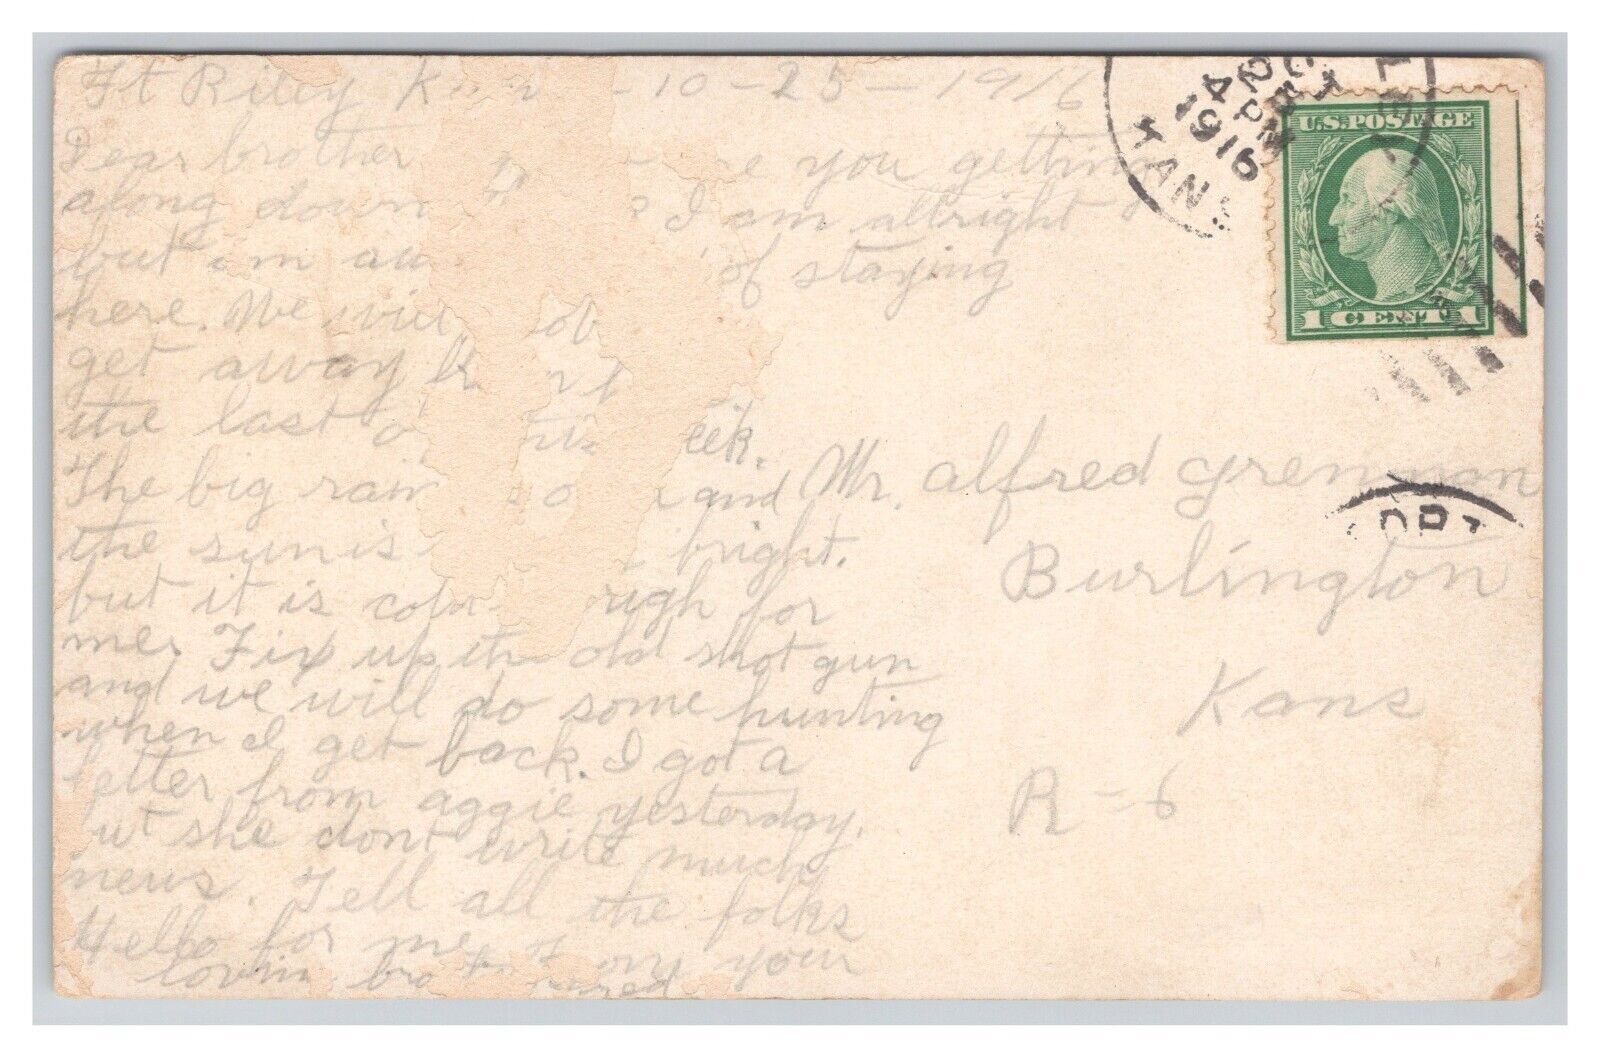 Ft Riley 10-25-1916
Dear brother you getting
along down I am allright
but im of staying
here. We will
get away
the last week.
The big rain and
the sun is bright.
but it is for
me. Fix up the old shot gun
and we will do some hunting
when I get back. I got a
letter from aggie yesterday.
but she dont write much
news. Tell all the folks
Hello for me your
loving
OCT
2 PM
4
1916
KANS.
U.S.POSTAGE
1 CENT 1
Mr. Alfred Grennon
Burlington
Kans
R-6